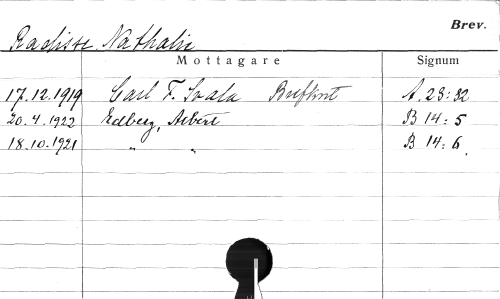 Brev.
Radisse Nathalie
Mottagare Signum
17.12.1919 Carl F. Svala Brefkort A. 28: 82
20.4.1922 Edberg, Albert B 14: 5
18.10.1921 " " B 14: 6.